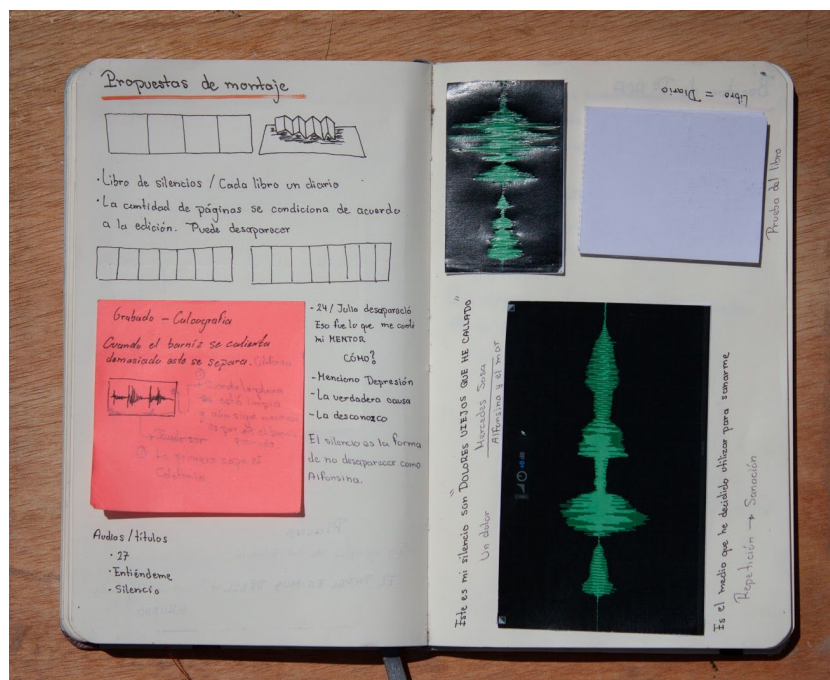 Propuestas de montaje
· Libro de silencios / Cada libro un diario
· La cantidad de páginas se condiciona de acuerdo
a la edición. Puede desaparecer
Grabado - Calcografía
Cuando el barniz se calienta
demasiado este se separa.
- 24 / Julio desapareció
Eso fue lo que me contó
mi MENTOR
CÓMO?
- Menciono Depresión
- La verdadera causa
- La desconozco
El silencio es la forma
de no desaparecer como
Alfonsina.
Audios / títulos
· 27
· Entiéndeme
· Silencio
Libro = Diario
Prueba del libro
Este es mi silencio son "DOLORES VIEJOS QUE HE CALLADO"
Un dolor Mercedes Sosa
Alfonsina y el mar
Es el medio que he decidido utilizar para sanarme
Repetición → Sanación